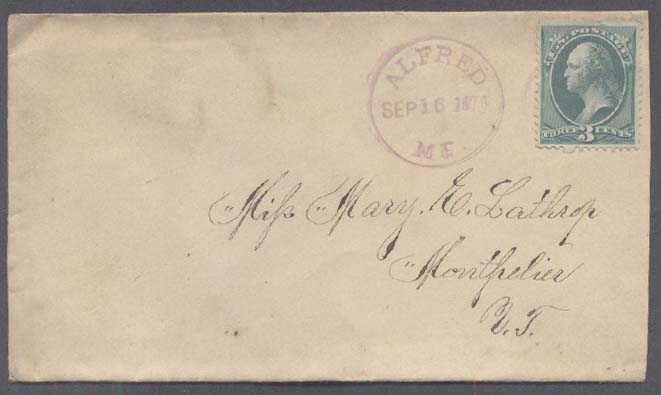 U.S. POSTAGE
THREE 3 CENTS
ALFRED
SEP 16 187
ME.
"Miss "Mary. E. Lathrop
"Montpelier
V.T.